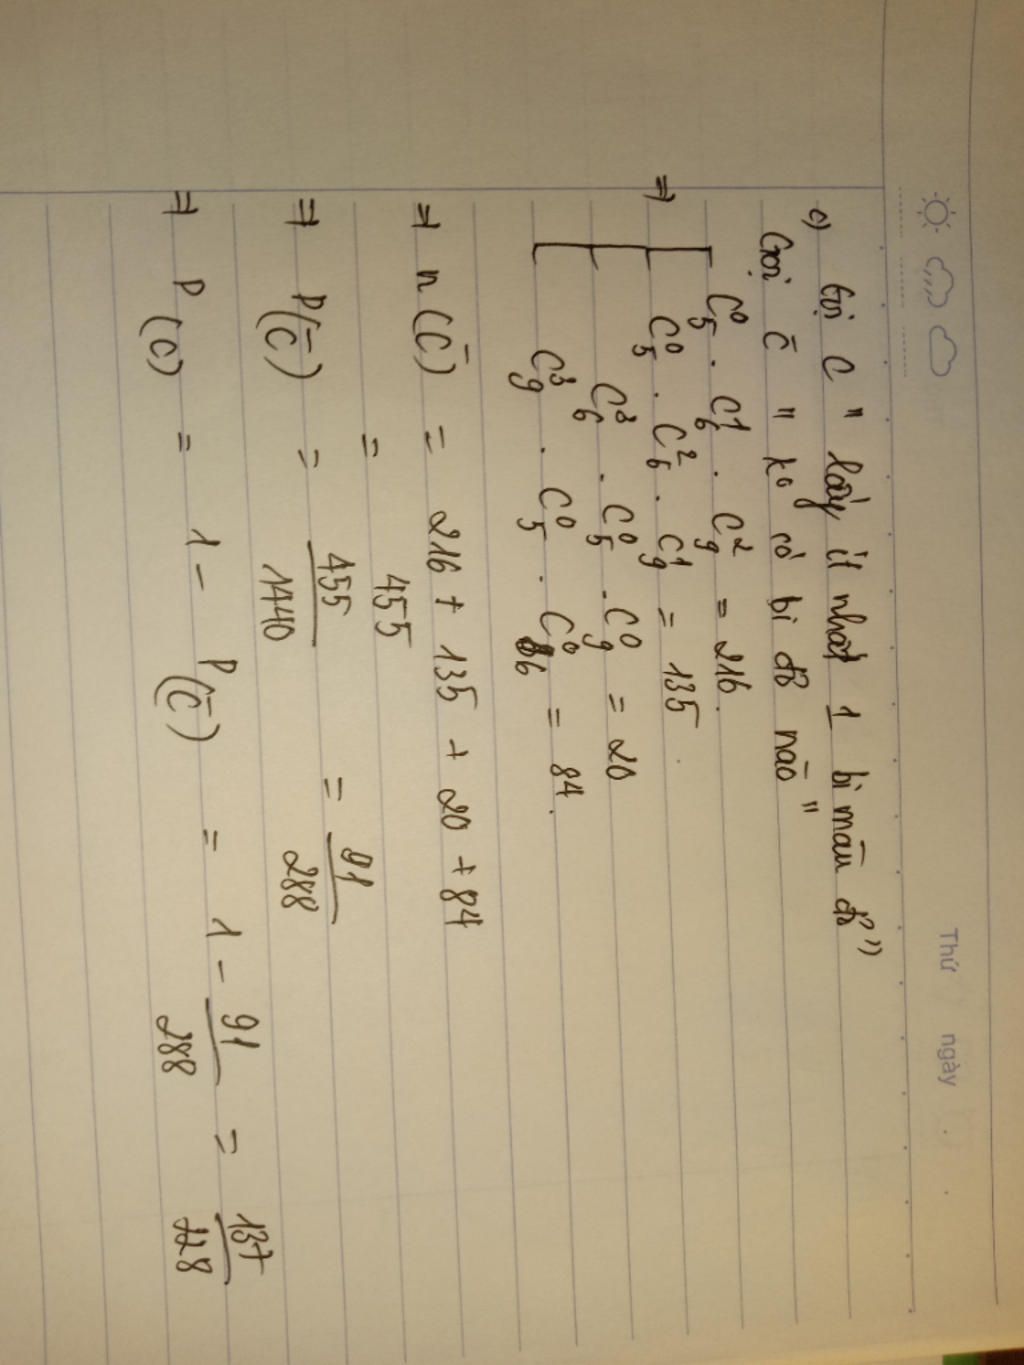 Thứ ngày
c) Gọi C " lấy ít nhất 1 bi màu đỏ "
Gọi C̄ " ko có bi đỏ nào "
⇒ C⁰₅ . C¹₆ . C²₉ = 216.
C⁰₅ . C²₆ . C¹₉ = 135.
C³₆ . C⁰₅ . C⁰₉ = 20
C³₉ . C⁰₅ . C⁰₆ = 84.
⇒ n(C̄) = 216 + 135 + 20 + 84
= 455
⇒ P(C̄) = 455/1440 = 91/288
⇒ P(C) = 1 - P(C̄) = 1 - 91/288 = 137/228